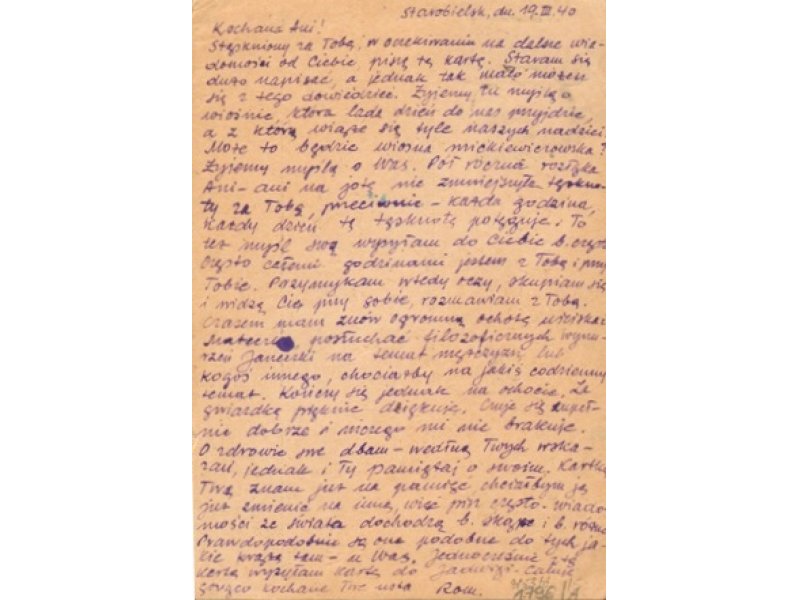 Starobielsk, dn. 19.III.40
Kochana Ani!
Stęskniony za Tobą, w oczekiwaniu na dalsze wia-
domości od Ciebie piszę tę kartę. Staram się
dużo napisać, a jednak tak mało możesz
się z tego dowiedzieć. Żyjemy tu myślą o
wiośnie, która lada dzień do nas przyjdzie,
a z którą wiąże się tyle naszych nadziei.
Może to będzie wiosna mickiewiczowska?
Żyjemy myślą o Was. Pół roczna rozłąka
Ani-ani na jotę nie zmniejszyła tęskno-
ty za Tobą, przeciwnie - każda godzina,
każdy dzień tę tęsknotę potęguje. To
też myśl swą wysyłam do Ciebie b. często
Często całemi godzinami jestem z Tobą i przy
Tobie. Przymykam wtedy oczy, skupiam się
i widzę Cię przy sobie, rozmawiam z Tobą.
Czasem mam znów ogromną ochotę uściskać
Mateczkę, posłuchać filozoficznych wynu-
rzeń Janeczki na temat mężczyzn lub
kogoś innego, chociażby na jakiś codzienny
temat. Kończy się jednak na ochocie. Za
gwiazdkę pięknie dziękuję. Czuję się zupeł-
nie dobrze i niczego mi nie brakuje.
O zdrowie swe dbam - według Twych wska-
zań, jednak i Ty pamiętaj o swoim. Kartkę
Twą znam już na pamięć chciałbym ją
już zmienić na inną, więc pisz często. Wiado-
mości ze świata dochodzą b. skąpe i b. różne
Prawdopodobnie są one podobne do tych ja-
kie krążą tam - u Was. Jednocześnie z tą
kartą wysyłam kartę do Jadwigi. Całuję
gorąco kochane Twe usta Rom.
1796